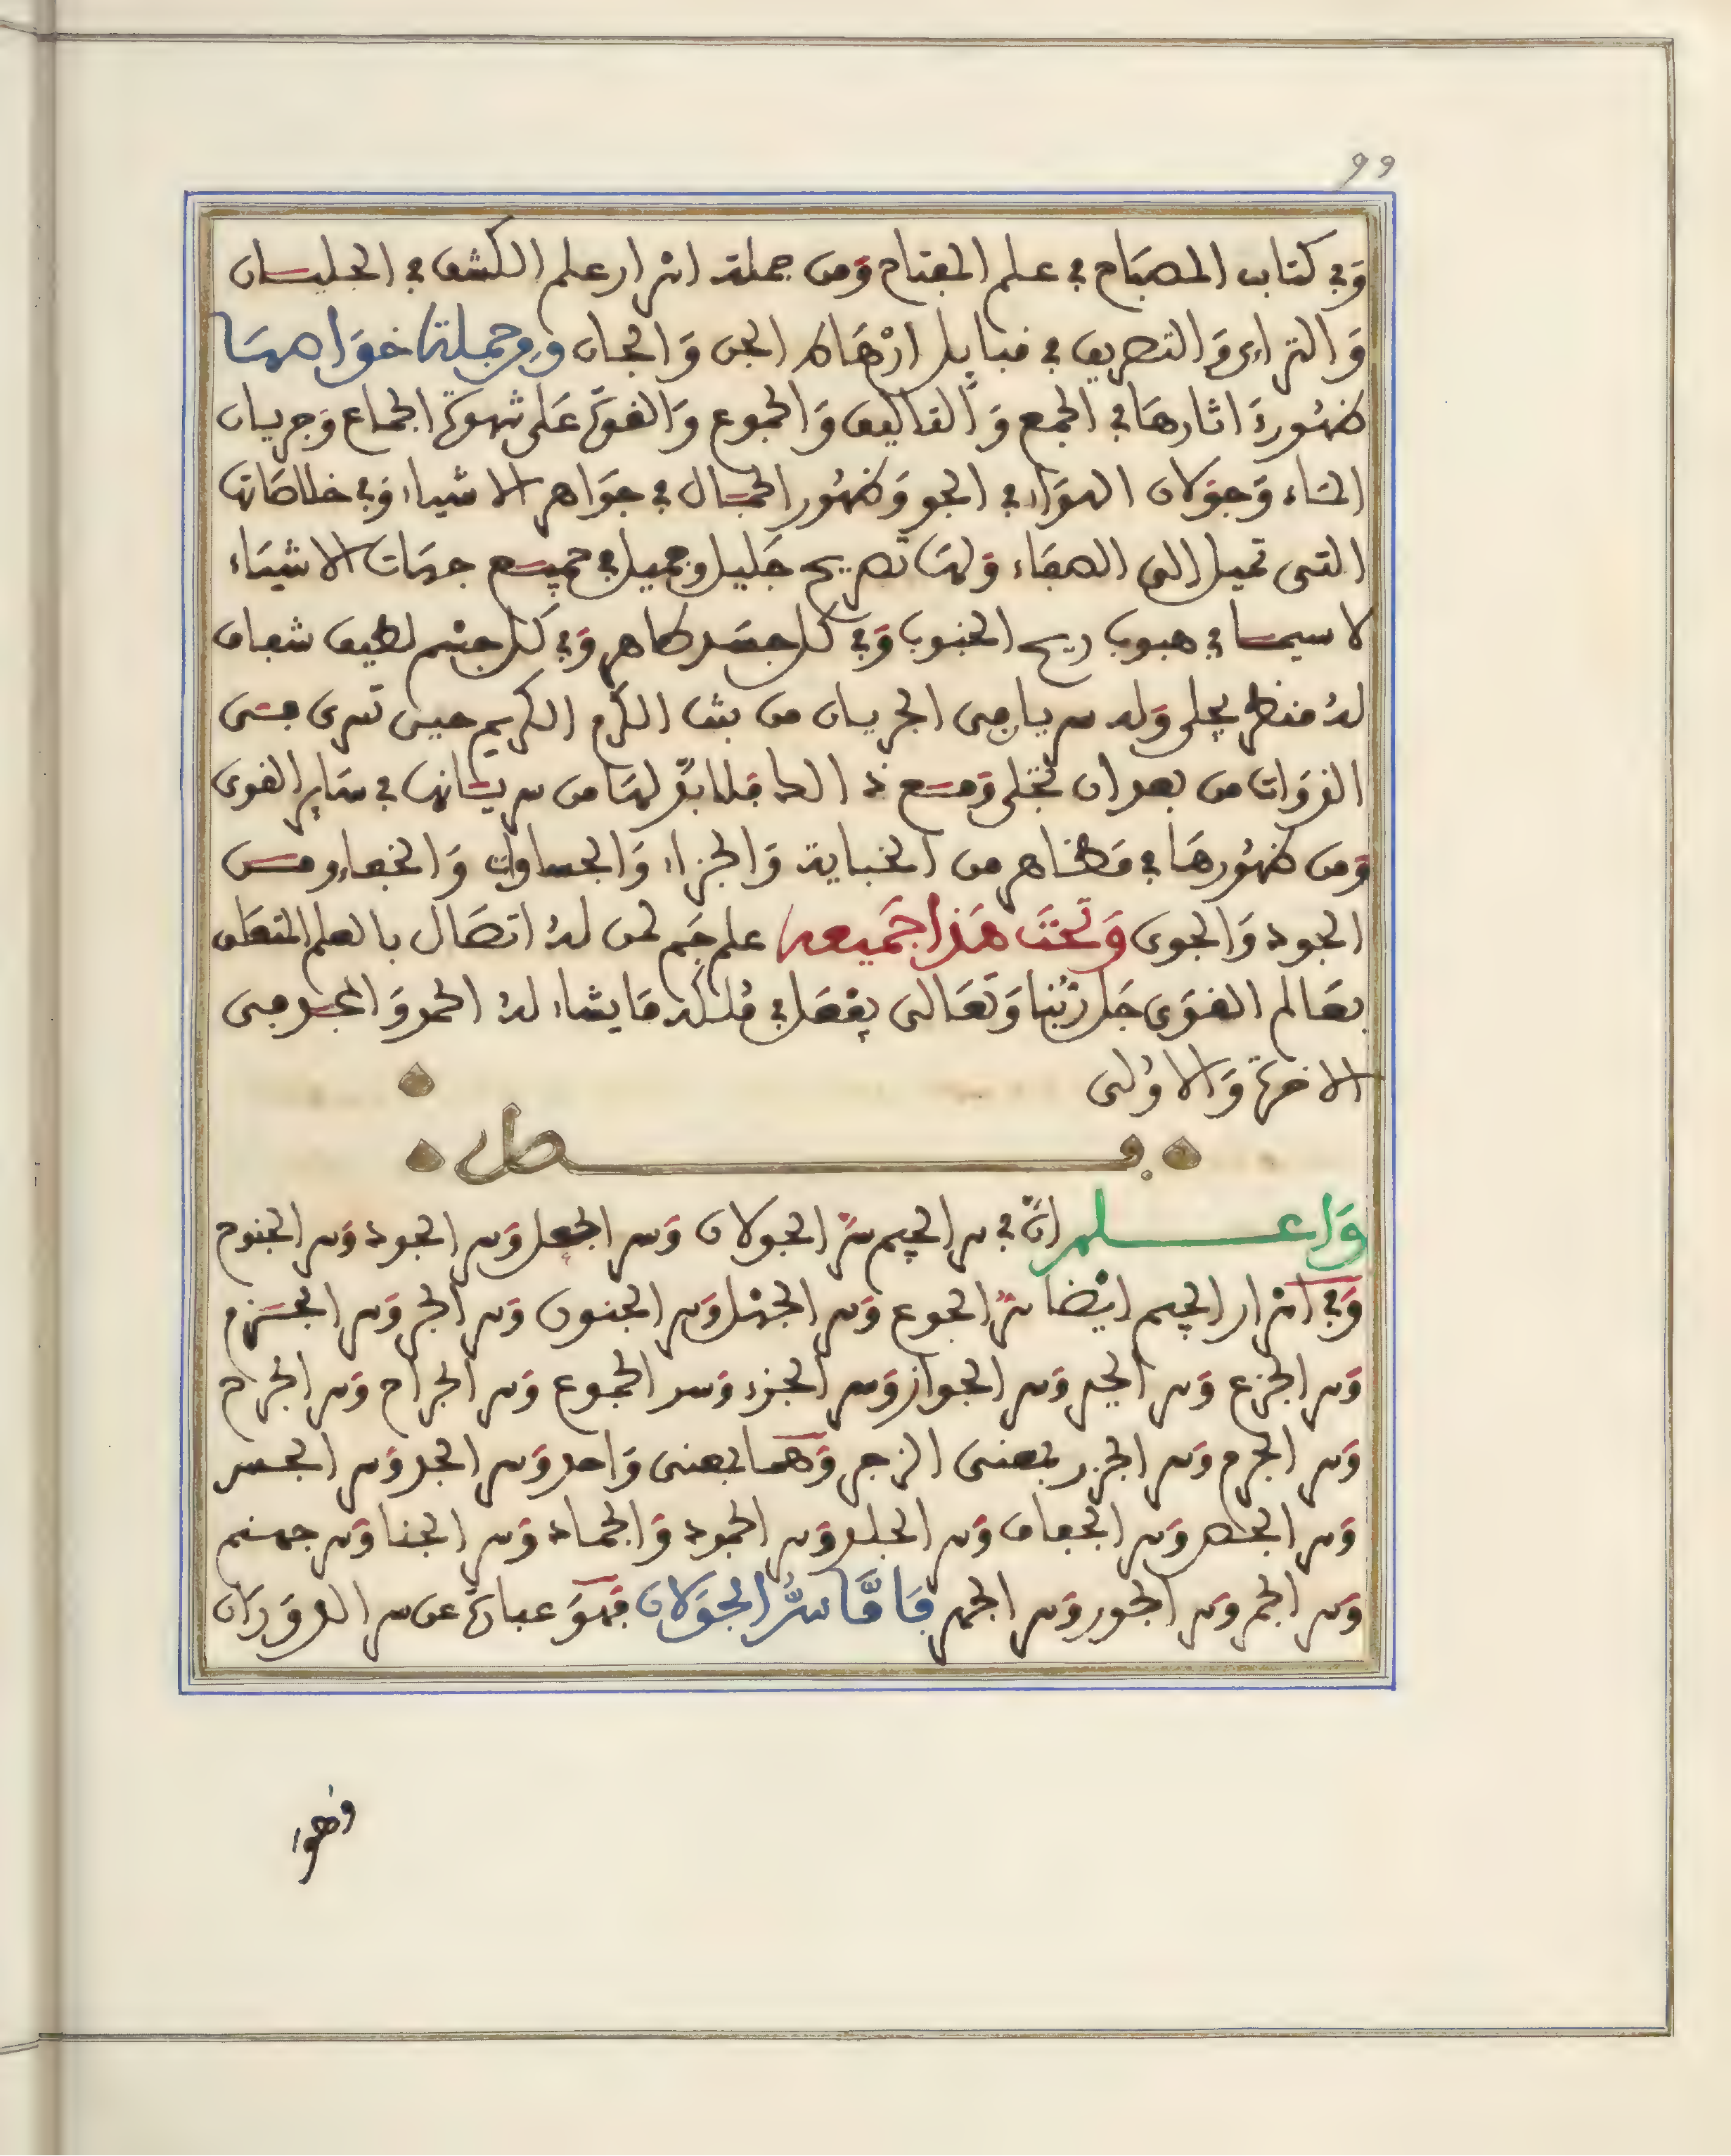 99
وَفِي كتاب المصبَاح في علم المفتاح وَمن جملة اسْرار علم الكشف في الجليسان
وَالتراءى وَالتصريف في قبايل ارْهَاط الجن وَالجان وَجملة خوَاصهَا
ظهُورة اثارهَا في الجمع وَالتاليف وَالجموع وَالقوة عَلى شهوة الجماع وَجريان
المَاء وَجوَلان الهوَاء في الجو وَظهُور الجمَال في جوَاهر الاشياء وَفي خلاصَاتها
التى تميل إلى الصفَاء وَلهَا تصريح جَليل وجميل في جميع جهَات الاشيَاء
لا سيما في هبوب ريح الجنوب وَفي كل جسَد طاهر وَفي كل جسْم لطيف شفاف
لهُ منظر يجلى وَله سريان من الجريان من بث الكرم الكريم حين تسرى من
القوَات من بعد ان تجلى وَمع ذلك فلابدّ لهَا من سريَانها في سَاير القوى
وَمن ظهُورهَا في مَظَاهر من الجناية وَالجزاء وَالجساوات وَالجفاء ومن
الجود وَالجوى وَتَحْتَ هَذا جَميعه علم جَم لمن لهُ اتصَال بالعلم المتعلق
بعَالم القوَى جَل رَبُنا وَتعَالى يفْعَل في مُلكه مَا يشاء لهُ الحمد وَالمجد من
الاخرة وَالاوُلى
فصل
وَاعلم انَّ في سر الجيم سرّ الجولان وَسر الجعل وَسر الجود وَسر الجنوح
وَفي اسْرار الجيم ايْضا سرّ الجوع وَسر الجهْل وَسر الجنون وَسر الجر وَسر الجَزم
وَسر الجزع وَسر الجيد وَسر الجواز وَسر الجزء وَسر الجموع وَسر الجراح وَسر الجرح
وَسر الجرم وَسر الجزر بمعنى الزجر وَهما بمعنى وَاحد وَسر الجد وَسر الجسر
وَسر الجصد وَسر الجفاف وَسر الجلد وَسر الجمود وَالجماد وَسر الجنا وَسر جهنم
وَسر الجمر وَسر الجور وَسر الجهر فَامَّا سرُّ الجوَلان فهوَ عبارة عن سر الدوَرَان
فهو